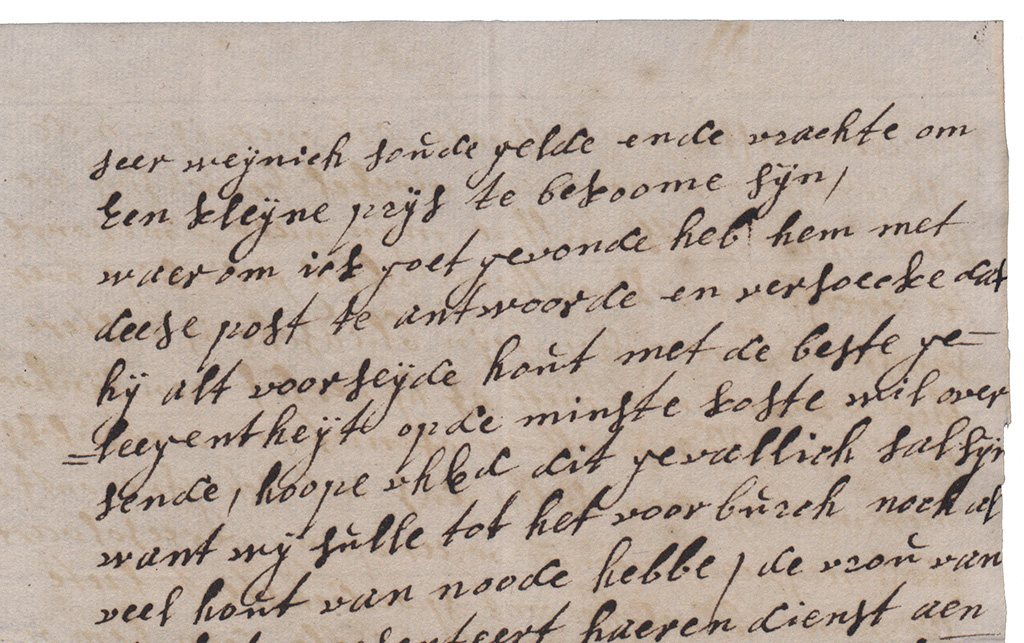 seer weynich soude gelde ende vrachte om
een kleyne prys te bekoome syn,
waerom ick goet gevonde heb hem met
deese post te antwoorde en versoecke dat
hy alt voorseyde hout met de beste ge–
=leegentheyt op de minste koste wil over
sende, hoope uhEd dit gevallich sal syn
want wy sulle tot het voorburch noch al
veel hout van noode hebbe, de vrou van
haeren dienst aen